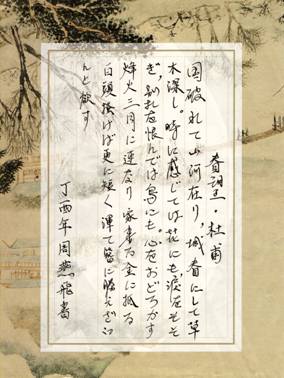 春望・杜甫
国破れて山河在り,城春にして草
木深し,時に感じては花にも涙をそそ
ぎ,別れを恨んでは鳥にも心をおどろかす
烽火三月に連なり 家書万金に抵る
白頭掻けば更に短く 渾て簪に勝えざら
んと欲す
丁酉年周燕飛書